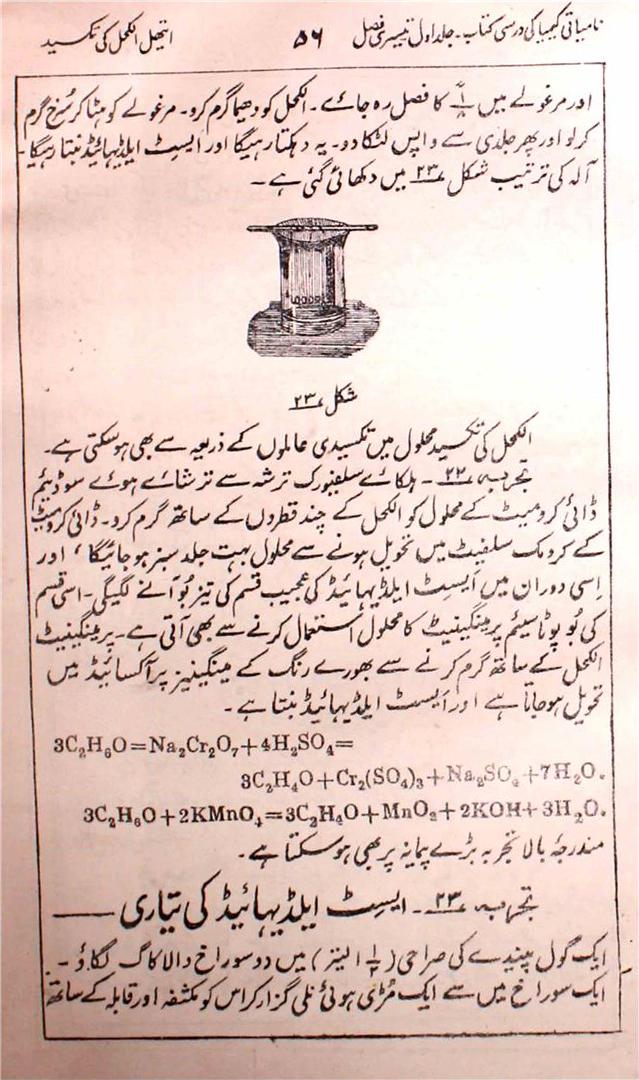 نامیاتی کیمیا کی درسی کتاب۔ جلد اول تیسری فصل ۵۶ ایتھل الکحل کی تکسید
اور مرغولے میں ⅛ کا فصل رہ جائے۔ الکحل کو دھیما گرم کرو۔ مرغولے کو ہٹا کر سُرخ گرم
کرلو اور پھر جلدی سے واپس لٹکا دو۔ یہ دہکتا رہیگا اور ایسٹ ایلڈیہائیڈ بنتا رہیگا۔
آلہ کی ترتیب شکل ۲۳ میں دکھائی گئی ہے۔
شکل ۲۳
الکحل کی تکسید محلول میں تکسیدی عاملوں کے ذریعہ سے بھی ہوسکتی ہے۔
تجربہ ۲۲۔ ہلکائے سلفیورک ترشہ سے ترشائے ہوئے سوڈیئم
ڈائی کرومیٹ کے محلول کو الکحل کے چند قطروں کے ساتھ گرم کرو۔ ڈائی کرومیٹ
کے کرومک سلفیٹ میں تحویل ہونے سے محلول بہت جلد سبز ہو جائیگا، اور
اِسی دوران میں ایسٹ ایلڈیہائیڈ کی عجیب قسم کی تیز بُو آنے لگیگی۔ اسی قسم
کی بُو پوٹاسیئم پرمینگینیٹ کا محلول استعمال کرنے سے بھی آتی ہے۔ پرمینگینیٹ
الکحل کے ساتھ گرم کرنے سے بھورے رنگ کے مینگینیز پرآکسائیڈ میں
تحویل ہوجاتا ہے اور ایسٹ ایلڈیہائیڈ بنتا ہے۔
3C₂H₆O=Na₂Cr₂O₇+4H₂SO₄=
3C₂H₄O+Cr₂(SO₄)₃+Na₂SO₄+7H₂O.
3C₂H₆O+2KMnO₄=3C₂H₄O+MnO₂+2KOH+3H₂O.
مندرجۂ بالا تجربہ بڑے پیمانہ پر بھی ہوسکتا ہے۔
تجربہ ۲۳۔ ایسٹ ایلڈیہائیڈ کی تیاری
ایک گول پیندے کی صراحی (½۱ لیتر) میں دو سوراخ والا کاگ لگاؤ۔
ایک سوراخ میں سے ایک مُڑی ہوئی نلی گزار کر اس کو مکثفہ اور قابلہ کے ساتھ